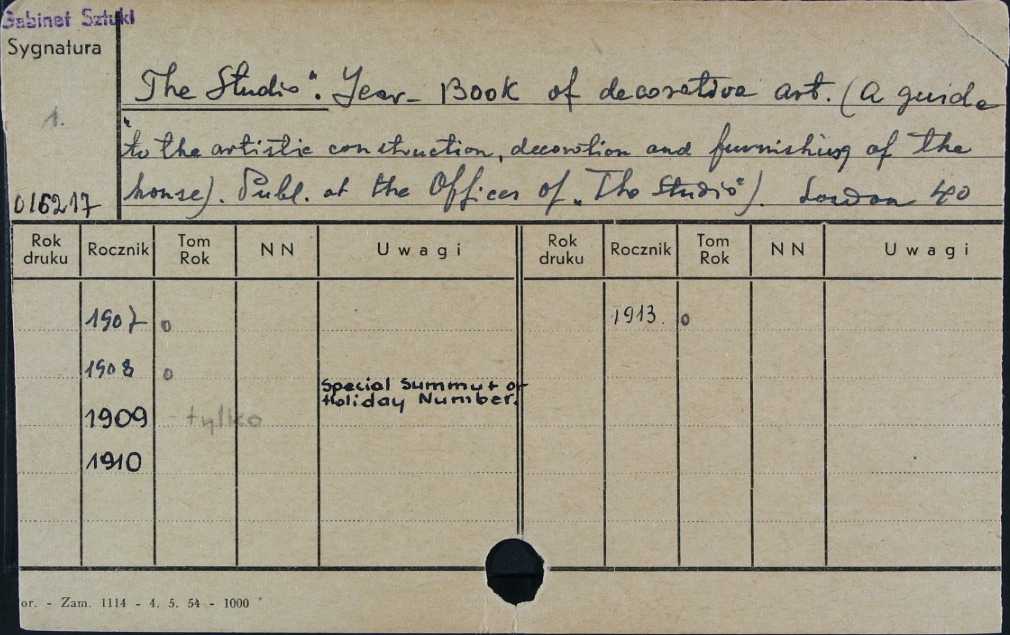 Gabinet Sztuki
Sygnatura
1.
016217
"The Studio". Year-Book of decorative art. (A guide
to the artistic construction, decoration and furnishing of the
house). Publ. at the Offices of „The Studio"). London 40
Rok druku Rocznik Tom Rok NN Uwagi Rok druku Rocznik Tom Rok NN Uwagi
1907 o 1913. o
1908 o
Special Summut or
Holiday Number.
1909 - tylko
1910
or. - Zam. 1114 - 4. 5. 54 - 1000